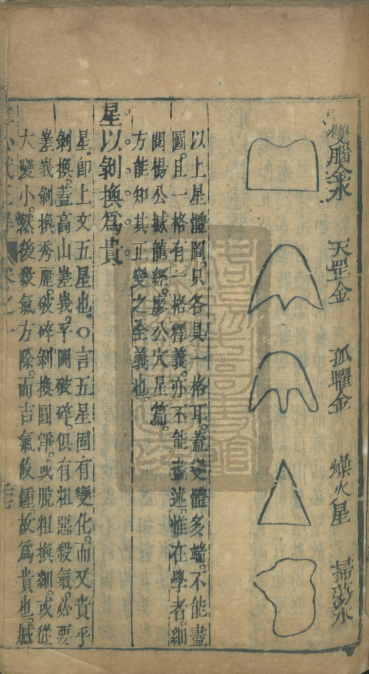 雙腦金水
天罡金
孤曜金
燥火星
掃蕩水
以上星體圖只各具一格耳蓋變體多端不能盡
圖且一格有一格釋義亦不能盡述惟在學者細
閱楊公撼龍經廖公穴星篇
方能知其正變之全義也
星以剝換爲貴
星即上文五星也〇言五星固有變化而又貴乎
剝換蓋高山嵳峩平岡破碎俱有粗惡殺氣必要
嵳峩剝換秀麗破碎剝換圓淨或脫粗換細或從
大變小然後殺氣方除而吉氣攸鍾故爲貴也